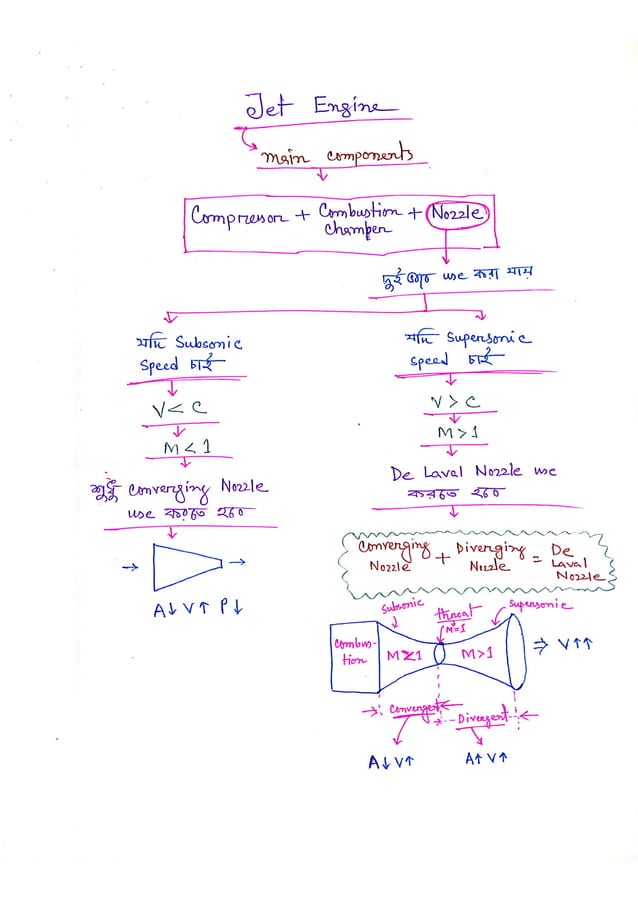 Jet Engine
main components
Compressor + Combustion Chamber + Nozzle
দুই ভাবে use করা যায়
যদি Subsonic
Speed চাই
V < C
M < 1
শুধু Converging Nozzle
use করতে হবে
A↓ V↑ P↓
যদি Supersonic
speed চাই
V > C
M > 1
De Laval Nozzle use
করতে হবে
Converging Nozzle + Diverging Nozzle = De Laval Nozzle
Subsonic
throat
M=1
Supersonic
Combus-
tion
M<1
M>1
⇒ V↑↑
Convergent
Divergent
A↓ V↑
A↑ V↑